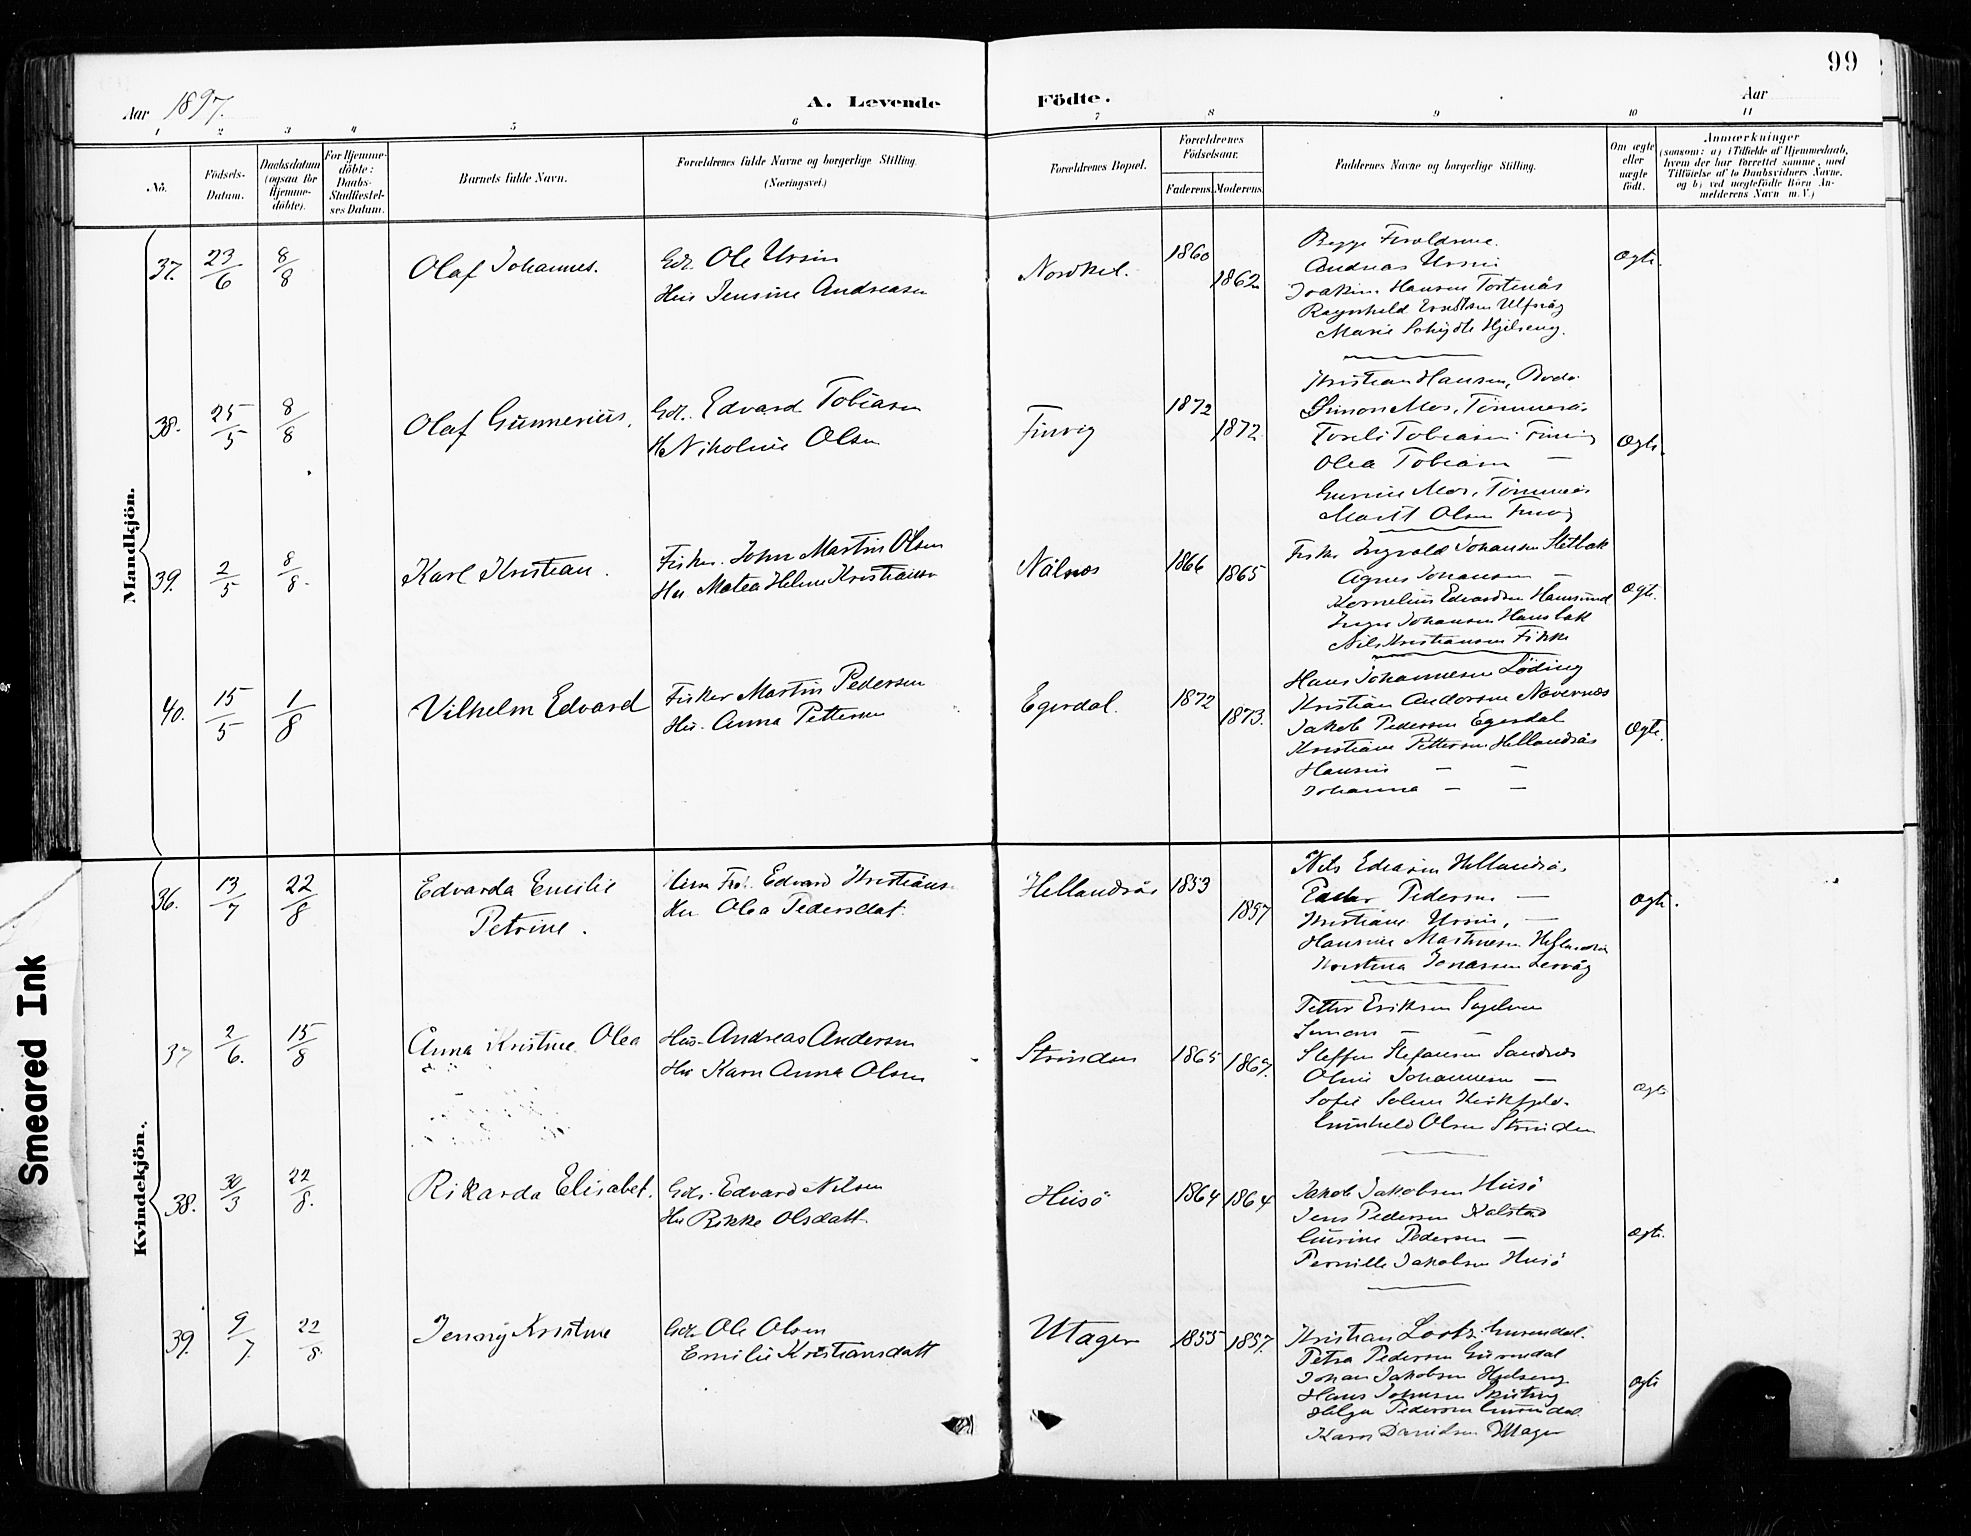 99
Aar 1897.
A. Levende Födte.
Aar
1 2 3 4 5 6 7 8 9 10 11
No.
Födsels-Datum.
Daabsdatum (ogsaa for Hjemme-döbte).
For Hjemme-döbte: Daabs-Stadfæstel-ses Datum.
Barnets fulde Navn.
Forældrenes fulde Navne og borgerlige Stilling. (Næringsvei.)
Forældrenes Bopæl.
Forældrenes Födselsaar.
Faderens. Moderens.
Faddernes Navne og borgerlige Stilling.
Om ægte eller uægte födt.
Anmærkninger
(saasom: a) i Tilfælde af Hjemmedaab, hvem der har forrettet samme, med Tilföielse af to Daabsvidners Navne, og b) ved uægtefödte Börn An-melderens Navn m. V.)
Mandkjön.
37. 23/6 8/8 Olaf Johannes. Gdr. Ole Ursin
Hus Jensine Andreasen
Nordkil. 1860 1862
Begge Forældrene.
Andreas Ursin
Joakim Hansen Tortenäs
Ragnhild Ulfsvåg
Marie Hjelseng.
Ægte.
38. 25/5 8/8 Olaf Gunnerius. Gdr. Edvard Tobiasen
H. Nikoline Olsen
Finvig 1872 1872
Kristian Hansen, Bodö
Simon Mos, Tömmerås
Tobiasen Finvig
Olea Tobiasen —
Mos, Tömmerås
Marit Olsen Finvig
Ægte.
39. 2/5 8/8. Karl Kristian. Fisker. John Martin Olsen
Hu. Matea Helene Kristiansen
Nålnes 1866 1865
Fisker Ingvald Johansen Sletbak
Agnes Johansen —
Kornelius Edvardsen Hamsund
Johansen Hansbak
Nils Kristiansen Fikke
Ægte.
40. 15/5 1/8 Vilhelm Edvard Fisker Martin Pedersen
Hu. Anna Pettersen
Egerdal. 1872 1873.
Hans Johannesen Löding
Kristian Andersen Navernes
Jakob Pedersen Egerdal
Kristiane Pettersen Hellandsås
Hansine — —
Johanna — —
Ægte.
Kvindekjön.
36. 13/7 22/8 Edvarda Emilie
Petrine.
Edvard Kristians
Hu Olea Pedersdat.
Hellandsås 1853 1857
Nils Hellandsås
Peder Pedersen —
Kristiane Ursin, —
Hansine Martinesen
Kristina Jonassen Lervåg
Ægte.
37 2/6. 15/8 Anna Kristine Olea Hus. Andreas Andersen
Hu Karn Anna Olsen
Strinden 1865 1867.
Petter Eriksen Sagelven
— —
Steffen Stefansen Sandnes
Oline Johannesen —
Sofie Solem
Gunhild Olsen Strinden
Ægte
38. 30/3 22/8. Rikarda Elisabet. Gdr. Edvard Nilsen
Hu Rikke Olsdatt.
Husö 1864 1864
Jakob Jakobsen Husö
Jens Pedersen Kalstad
Gurine Pedersen —
Pernille Jakobsen Husö
Ægte.
39. 9/7. 22/8 Jenny Kristine Gdr. Ole Olsen
Emilie Kristiansdatt
Utager 1855 1857.
Kristian Gurendal.
Petra Pedersen Gurendal
Johan Jakobsen Hjelseng
Hans Johnsen
Helga Pedersen Gurendal
Karn Davidsen Utager
Ægte
Smeared Ink